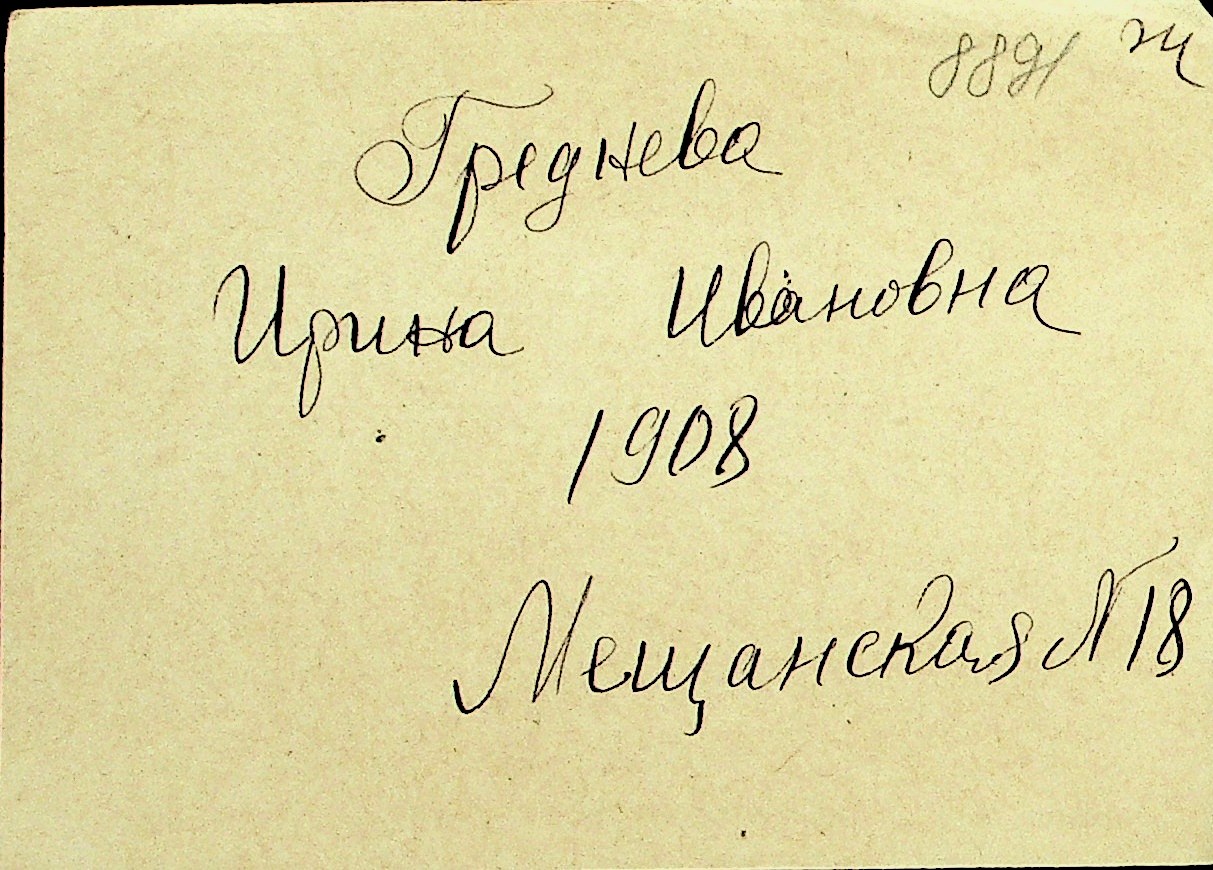 8891
Греднева
Ирина Ивановна
1908
Мещанская N 18